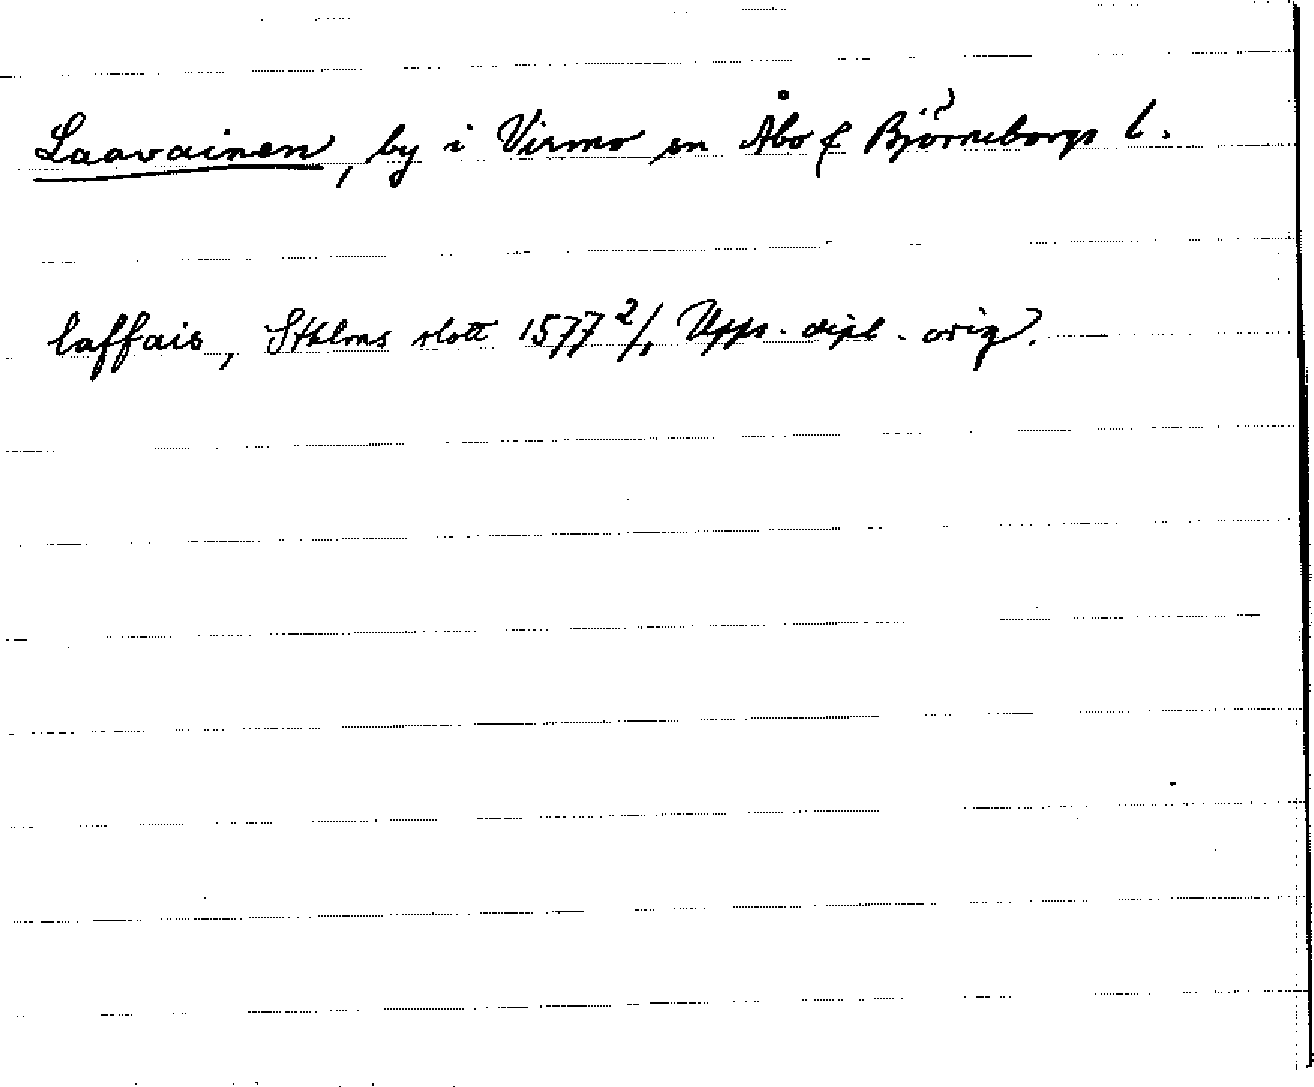 Laavainen, by i Virmo sn Åbo & Björneborgs l.
laffais, Sthlms slott 1577 2/1 Upps. dipl. orig.